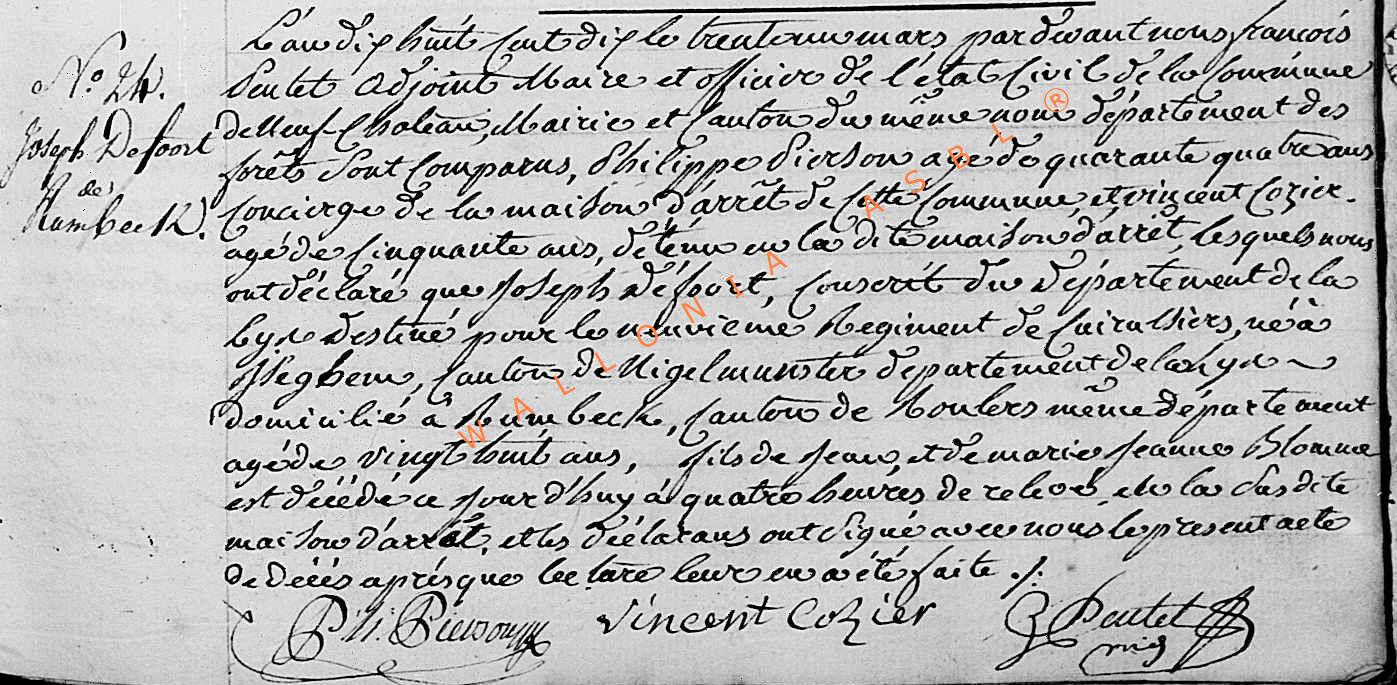 N.o 24.
Joseph Defoort
de
Rumbeck.
L'an dix huit cent dix le trente un mars par devant nous françois
Pentet adjoint Maire et officier de l'état Civil de la Commune
de Neuf-Chateau, Mairie et Canton du même nom département des
forêts sont Comparus, Philippe Pierson agé de quarante quatre ans
Concierge de la maison d'arrêt de Cette Commune, et vincent Cozier.
agé de Cinquante ans, détenu en la dite maison d'arrêt, Lesquels nous
ont déclaré que Joseph Defoort, Conscrit du Département de la
Lys Destiné pour le neuvieme Regiment de Cuirassiers, né à
Isseghem, Canton de Nigelmunster département de la Lys
domicilié à Rumbeck, Canton de Roulers même département
agé de vingt huit ans, fils de Jean, et de marie Jeanne Blomme
est décédé ce Jour d'huy à quatre heures de relevé, en la susdite
maison d'arrêt, et les déclarans ont signé avec nous le present acte
de Décés aprés que lecture leur en a été faite ./.
Ph. Pierson
Vincent Cozier
Pentet
WALLONIA ASBL ®